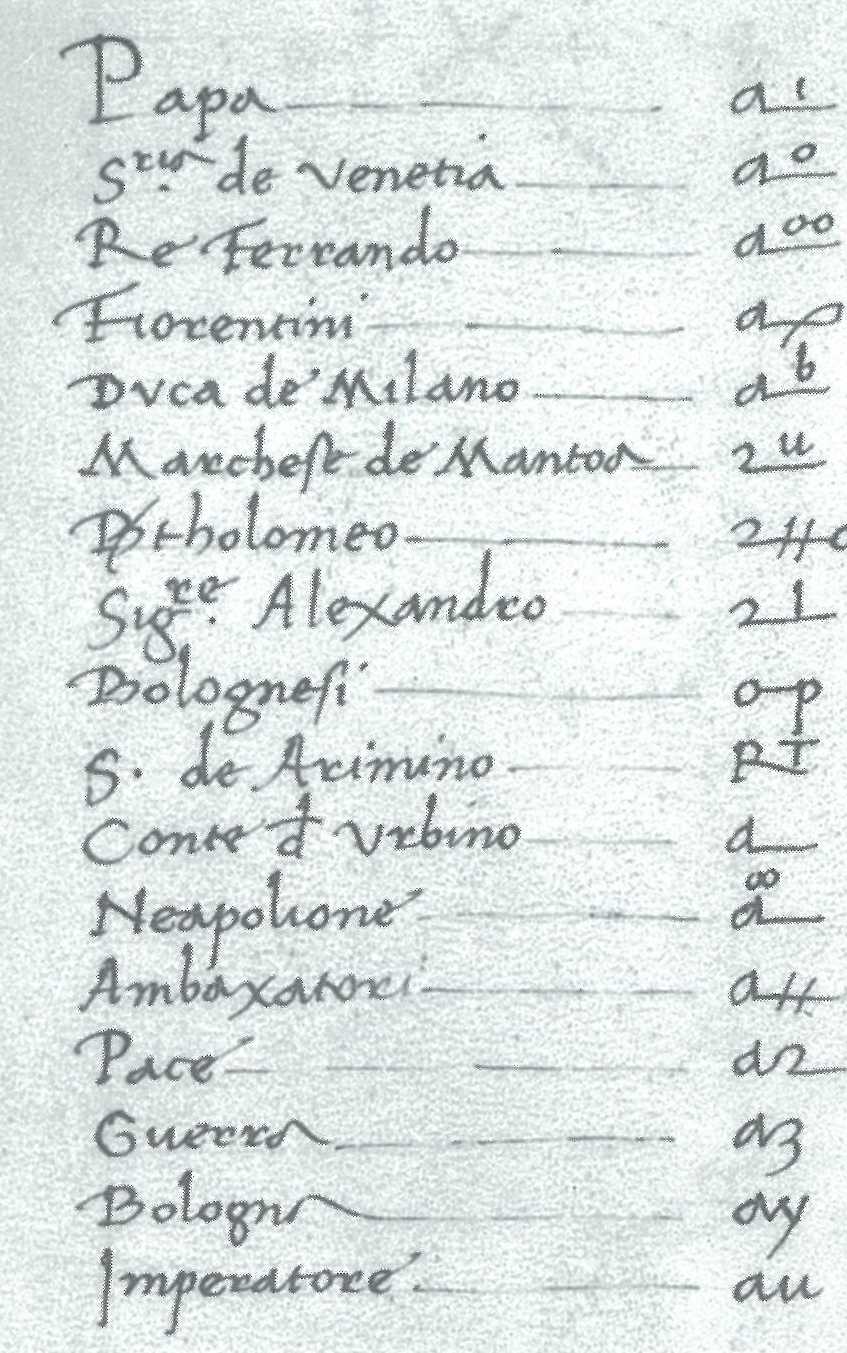 Papa a1
S.ria de Venetia ao
Re Ferrando aoo
Fiorentini
Dvca de Milano ab
Marchese de Mantoa 2u
Bartholomeo
Sig.re Alexandro 21
Bolognesi o-p
S. de Arimino RT
Conte d Vrbino a
Neapolione
Ambaxatori
Pace a2
Guerra a3
Bologna ay
Imperatore au